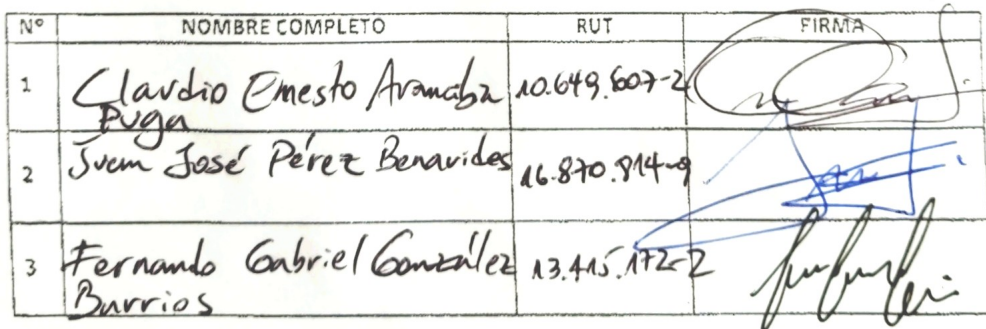 Nº NOMBRE COMPLETO RUT FIRMA
1 Claudio Ernesto Aramciba 10.649.607-2
Puga
2 Juan José Pérez Benavides 16.870.814-9
3 Fernando Gabriel González 13.415.172-2
Barrios